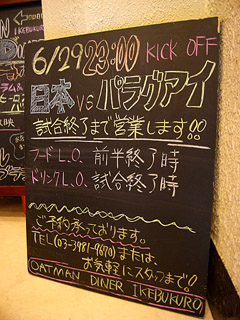 IKEBUKURO
6/29 23:00 KICK OFF
日本 vs パラグアイ
試合終了まで営業します!!
フードL.O. 前半終了時
ドリンクL.O. 試合終了時
ご予約承っております。
TEL(03-3981-9670)または、
お気軽にスタッフまで!!
OATMAN DINER IKEBUKURO